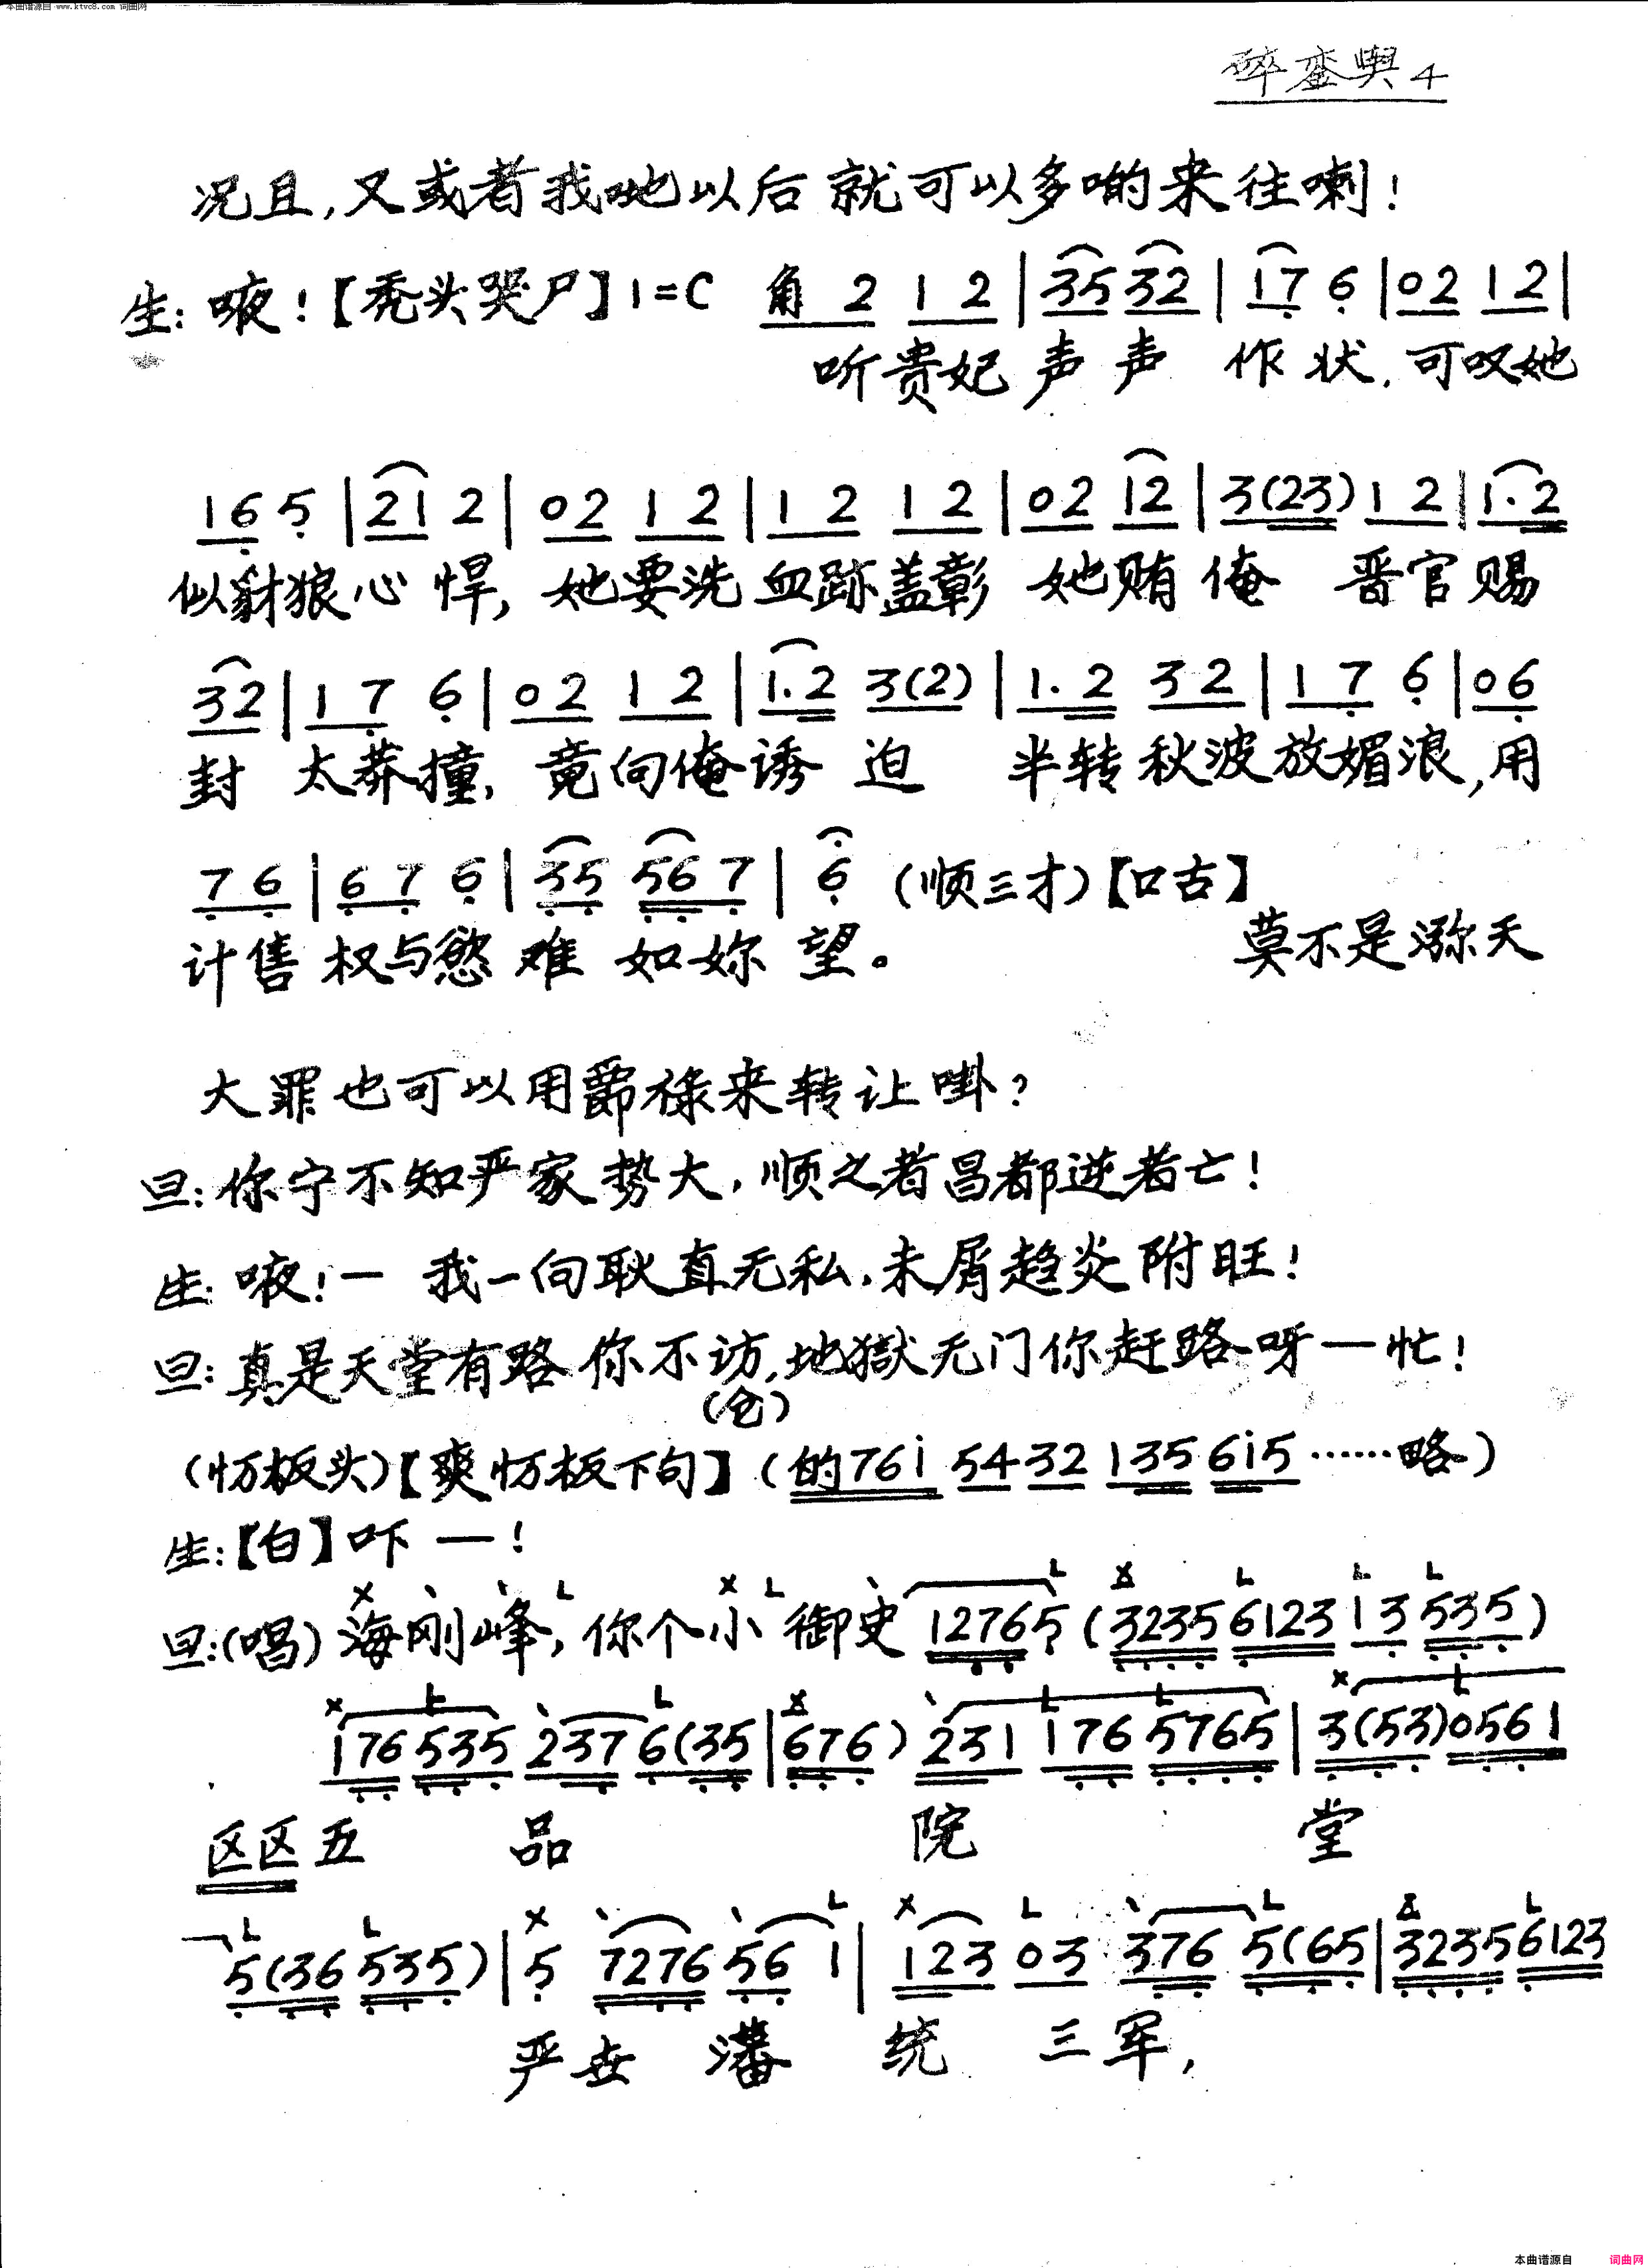 本曲谱源自 www.ktvc8.com 词曲网
醉銮舆4
况且,又或者我哋以后就可以多啲来往喇!
生:唆!【秃头哭尸】1=C 角 2 1 2 | 35 32 | 17 6 | 02 12 |
听贵妃声声 作状,可叹她
165 | 21 2 | 02 12 | 12 12 | 02 12 | 3(23) 12 | 1.2
似豺狼心悍,她要洗血跡盖彰 她贿俺 晋官赐
32 | 17 6 | 02 12 | 1.2 3(2) | 1.2 32 | 17 6 | 06
封 太莽撞,竟向俺诱迫 半转秋波放媚浪,用
76 | 67 6 | 35 567 | 6 (顺三才)【口古】
计售权与慾难 如妳望。 莫不是瀰天
大罪也可以用爵禄来转让啩?
旦:你宁不知严家势大,顺之者昌都逆者亡!
生:!一 我一向耿直无私,未屑趋炎附旺!
旦:真是天堂有路你不访,地獄无门你赶路呀一忙!
(仓)
(忟板头)【爽忟板下句】(的761 54 32 135 615……略)
生:【白】吓 一!
旦:(唱)海刚峰,你个小御史 12765 (3235 6123 13 535)
176 535 237 6(35 | 676) 231 176 5765 | 3(53)0561
区区五 品 院 堂
5(36 535) | 5 7276 56 1 | 123 03 376 5(65 | 3235 6123
严世 瀋 统 三军,
本曲谱源自 词曲网